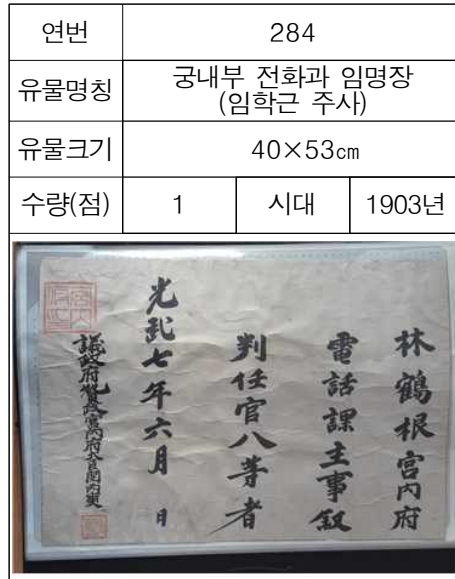 연번 284
유물명칭 궁내부 전화과 임명장
(임학근 주사)
유물크기 40×53㎝
수량(점) 1 시대 1903년
林鶴根宮內府
電話課主事叙
判任官八等者
光武七年六月 日
議政府贊政宮內府大臣